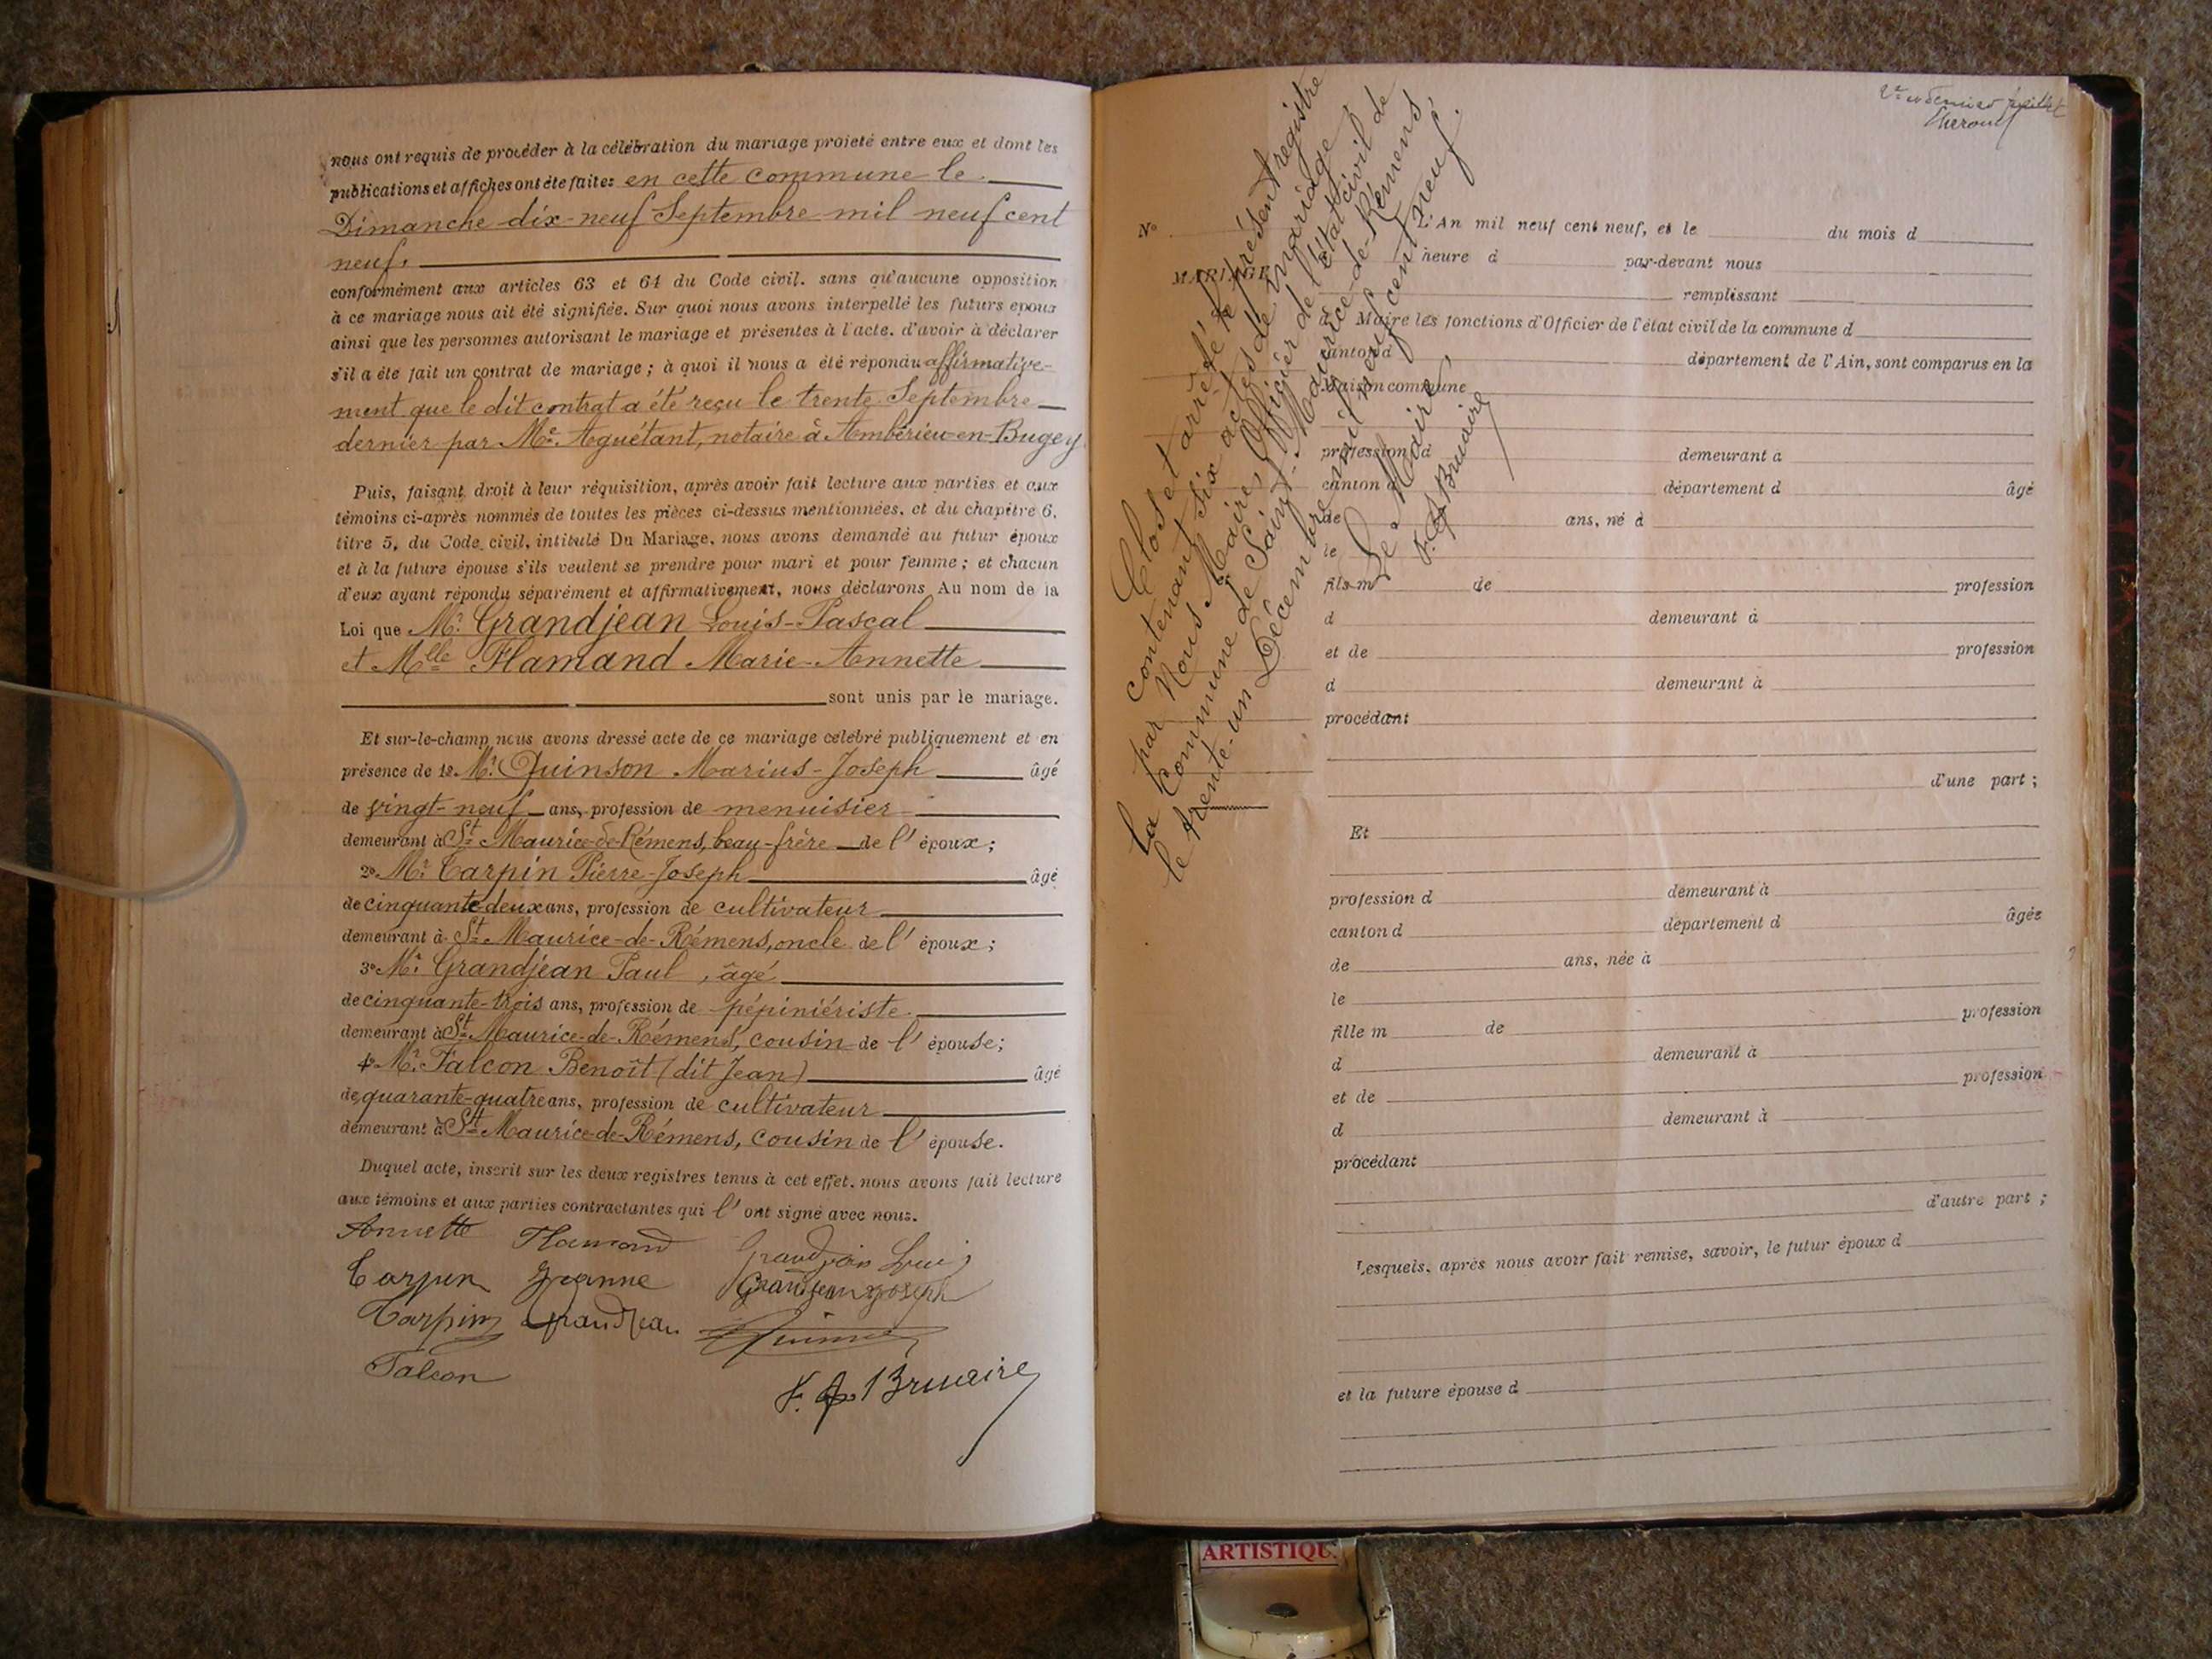 nous ont requis de procéder à la célébration du mariage projeté entre eux et dont les
publications et affiches ont été faites en cette commune le
Dimanche dix-neuf Septembre mil neuf cent
neuf,
conformément aux articles 63 et 64 du Code civil, sans qu'aucune opposition
à ce mariage nous ait été signifiée. Sur quoi nous avons interpellé les futurs époux
ainsi que les personnes autorisant le mariage et présentes à l'acte, d'avoir à déclarer
s'il a été fait un contrat de mariage ; à quoi il nous a été répondu affirmative-
ment que le dit contrat a été reçu le trente Septembre
dernier par Me. Aguétant, notaire à Ambérieu-en-Bugey
Puis, faisant droit à leur réquisition, après avoir fait lecture aux parties et aux
témoins ci-après nommés de toutes les pièces ci-dessus mentionnées, et du chapitre 6,
titre 5, du Code civil, intitulé Du Mariage, nous avons demandé au futur époux
et à la future épouse s'ils veulent se prendre pour mari et pour femme ; et chacun
d'eux ayant répondu séparément et affirmativement, nous déclarons Au nom de la
Loi que Mr. Grandjean Louis-Pascal
et Melle Flamand Marie-Annette
sont unis par le mariage.
Et sur-le-champ nous avons dressé acte de ce mariage célébré publiquement et en
présence de 1º Mr. Quinson Marius-Joseph âgé
de vingt-neuf ans, profession de menuisier
demeurant à St-Maurice-de-Rémens, beau-frère de l'époux ;
2º Mr. Carpin Pierre-Joseph âgé
de cinquante-deux ans, profession de cultivateur
demeurant à St-Maurice-de-Rémens, oncle de l'époux ;
3º Mr. Grandjean Paul, âgé
de cinquante-trois ans, profession de pépiniériste
demeurant à St-Maurice-de-Rémens, cousin de l'épouse ;
4º Mr. Falcon Benoît (dit Jean) âgé
de quarante-quatre ans, profession de cultivateur
demeurant à St-Maurice-de-Rémens, cousin de l'épouse.
Duquel acte, inscrit sur les deux registres tenus à cet effet, nous avons fait lecture
aux témoins et aux parties contractantes qui l'ont signé avec nous.
Annette Flamand Grandjean Louis
Carpin Jeanne Grandjean Joseph
Carpin Grandjean Quinson
Falcon
F. Bruaire
2e et dernier feuillet
Clos et arrêté le présent registre
contenant six actes de mariage
par Nous Maire, Officier de l'état civil de
la Commune de Saint-Maurice-de-Rémens,
le trente-un Décembre mil neuf cent neuf.
Le Maire,
F. Bruaire
Nº
MARIAGE
L'An mil neuf cent neuf, et le du mois d
heure d par-devant nous
remplissant
d Maire les fonctions d'Officier de l'état civil de la commune d
canton d département de l'Ain, sont comparus en la
maison commune
profession d demeurant à
canton d département d âgé
de ans, né à
le
fils m de profession
d demeurant à
et de profession
d demeurant à
procédant
d'une part ;
Et
profession d demeurant à
canton d département d âgée
de ans, née à
le
fille m de profession
d demeurant à
et de profession
d demeurant à
procédant
d'autre part ;
Lesquels, après nous avoir fait remise, savoir, le futur époux d
et la future épouse d
ARTISTIQU